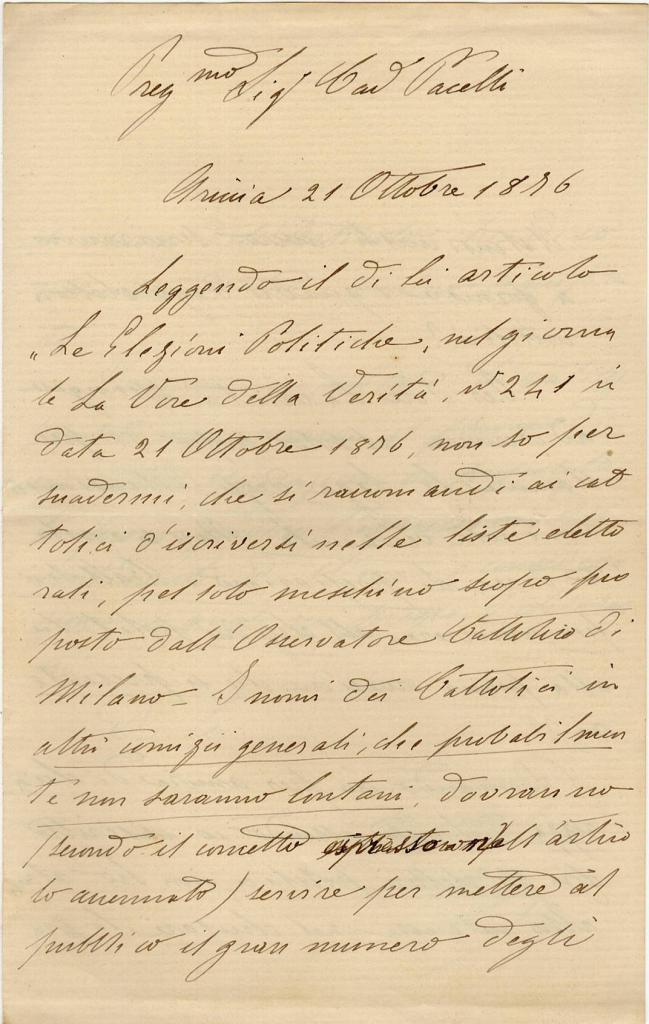 Preg^mo Sig^r Cav Pacelli
21 Ottobre 1876
Leggendo il di lei articolo
„Le Elezioni Politiche, nel giorna
le La Voce della Verità, n° 241 in
data 21 Ottobre 1876, non so per
suadermi, che si raccomandi ai cat
tolici d'iscriversi nelle liste eletto
rali, pel solo meschino scopo pro
posto dall'Osservatore Cattolico di
Milano - I nomi dei Cattolici in
altri comizii generali, che probabilmen
te non saranno lontani, dovranno
(secondo il concetto nell'artico
lo accennato) servire per mettere al
pubblico il gran numero degli